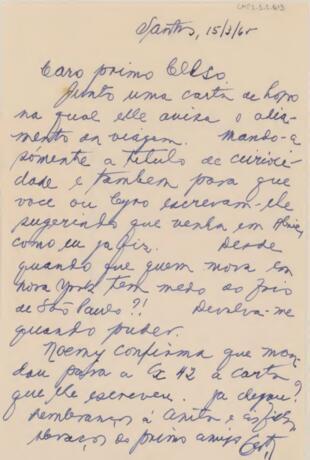 Santos, 15/3/65
Caro primo Celso
Junto uma carta de
na qual elle avisa o adia-
mento da viagem. Mando-a
sómente a titulo de curiosi-
dade e tambem para que
voce ou Cyro escrevam-lhe
sugerindo que venha em
como eu ja fiz. Desde
quando que quem mora em
Nova York tem medo do frio
de São Paulo?! Devolva-me
quando puder.
Noemy confirma que man-
dou para a Cx 42 a carta
que lhe escreveu. Ja chegou?
Lembranças á Anita e ás
abraços do primo amigo